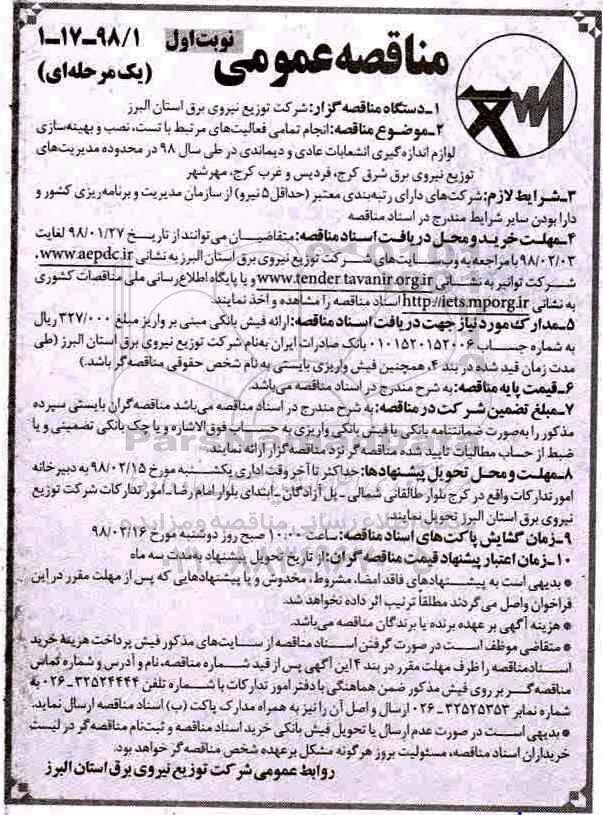 مناقصه عمومی
نوبت اول
۱-۱۷-۹۸/۱
(یک مرحله‌ای)
۱ـ دستگاه مناقصه گزار: شرکت توزیع نیروی برق استان البرز
۲ـ موضوع مناقصه: انجام تمامی فعالیت‌های مرتبط با تست، نصب و بهینه‌سازی
لوازم اندازه‌گیری انشعابات عادی و دیماندی در طی سال ۹۸ در محدوده مدیریت‌های
توزیع نیروی برق شرق کرج، فردیس و غرب کرج، مهرشهر
۳ـ شرایط لازم: شرکت‌های دارای رتبه‌بندی معتبر (حداقل ۵ نیرو) از سازمان مدیریت و برنامه‌ریزی کشور و
دارا بودن سایر شرایط مندرج در اسناد مناقصه
۴ـ مهلت خرید و محل دریافت اسناد مناقصه: متقاضیان می‌توانند از تاریخ ۹۸/۰۱/۲۷ لغایت
۹۸/۰۲/۰۳ با مراجعه به وب‌سایت‌های شرکت توزیع نیروی برق استان البرز به نشانی www.aepdc.ir،
شرکت توانیر به نشانی www.tender.tavanir.org.ir و یا پایگاه اطلاع‌رسانی ملی مناقصات کشوری
به نشانی http://iets.mporg.ir اسناد مناقصه را مشاهده و اخذ نمایند.
۵ـ مدارک مورد نیاز جهت دریافت اسناد مناقصه: ارائه فیش بانکی مبنی بر واریز مبلغ ۳۲۷/۰۰۰ ریال
به شماره حساب ۰۱۰۱۵۲۰۱۵۲۰۰۶ بانک صادرات ایران به‌نام شرکت توزیع نیروی برق استان البرز (طی
مدت زمان قید شده در بند ۴، همچنین فیش واریزی بایستی به نام شخص حقوقی مناقصه‌گر باشد.)
۶ـ قیمت پایه مناقصه: به شرح مندرج در اسناد مناقصه می‌باشد.
۷ـ مبلغ تضمین شرکت در مناقصه: به شرح مندرج در اسناد مناقصه می‌باشد مناقصه‌گران بایستی سپرده
مذکور را به‌صورت ضمانتنامه بانکی یا فیش بانکی واریزی به حساب فوق الاشاره و یا چک بانکی تضمینی و یا
ضبط از حساب مطالبات تایید شده مناقصه‌گر نزد مناقصه‌گزار ارائه نمایند.
۸ـ مهلت و محل تحویل پیشنهادها: حداکثر تا آخر وقت اداری یکشنبه مورخ ۹۸/۰۲/۱۵ به دبیرخانه
امور تدارکات واقع در کرج بلوار طالقانی شمالی ـ پل آزادگان ـ ابتدای بلوار امام رضا ـ امور تدارکات شرکت توزیع
نیروی برق استان البرز تحویل نمایند.
۹ـ زمان گشایش پاکت‌های اسناد مناقصه: ساعت ۱۰:۰۰ صبح روز دوشنبه مورخ ۹۸/۰۲/۱۶
۱۰ـ زمان اعتبار پیشنهاد قیمت مناقصه گران: از تاریخ تحویل پیشنهاد به‌مدت سه ماه
* بدیهی است به پیشنهادهای فاقد امضا، مشروط، مخدوش و یا پیشنهادهایی که پس از مهلت مقرر در این
فراخوان واصل می‌گردند مطلقاً ترتیب اثر داده نخواهد شد.
* هزینه آگهی بر عهده برنده یا برندگان مناقصه می‌باشد.
* متقاضی موظف است در صورت گرفتن اسناد مناقصه از سایت‌های مذکور فیش پرداخت هزینه خرید
اسناد مناقصه را ظرف مهلت مقرر در بند ۴ این آگهی پس از قید شماره مناقصه، نام و آدرس و شماره تماس
مناقصه‌گر بر روی فیش مذکور ضمن هماهنگی با دفتر امور تدارکات با شماره تلفن ۳۲۵۲۴۴۴۴-۰۲۶ به
شماره نمابر ۳۲۵۲۵۳۵۳-۰۲۶ ارسال و اصل آن را نیز به همراه مدارک پاکت (ب) اسناد مناقصه ارسال نماید.
* بدیهی است در صورت عدم ارسال یا تحویل فیش بانکی خرید اسناد مناقصه و ثبت‌نام مناقصه‌گر در لیست
خریداران اسناد مناقصه، مسئولیت بروز هرگونه مشکل برعهده شخص مناقصه‌گر خواهد بود.
روابط عمومی شرکت توزیع نیروی برق استان البرز
ParsNamadData